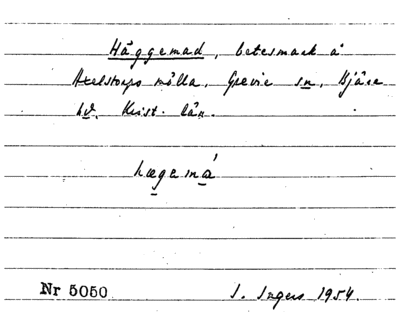 Häggemad, betesmark å
Axelstorps mölla, Grevie sn, Bjäre
hd. Krist. län.
hægemá
Nr 5050
I. Ingers 1954.